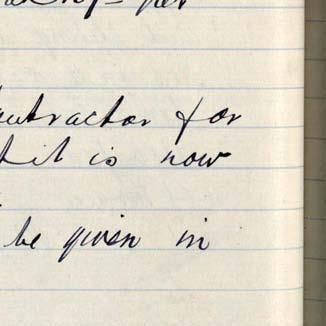 contractor for
it is now
be given in